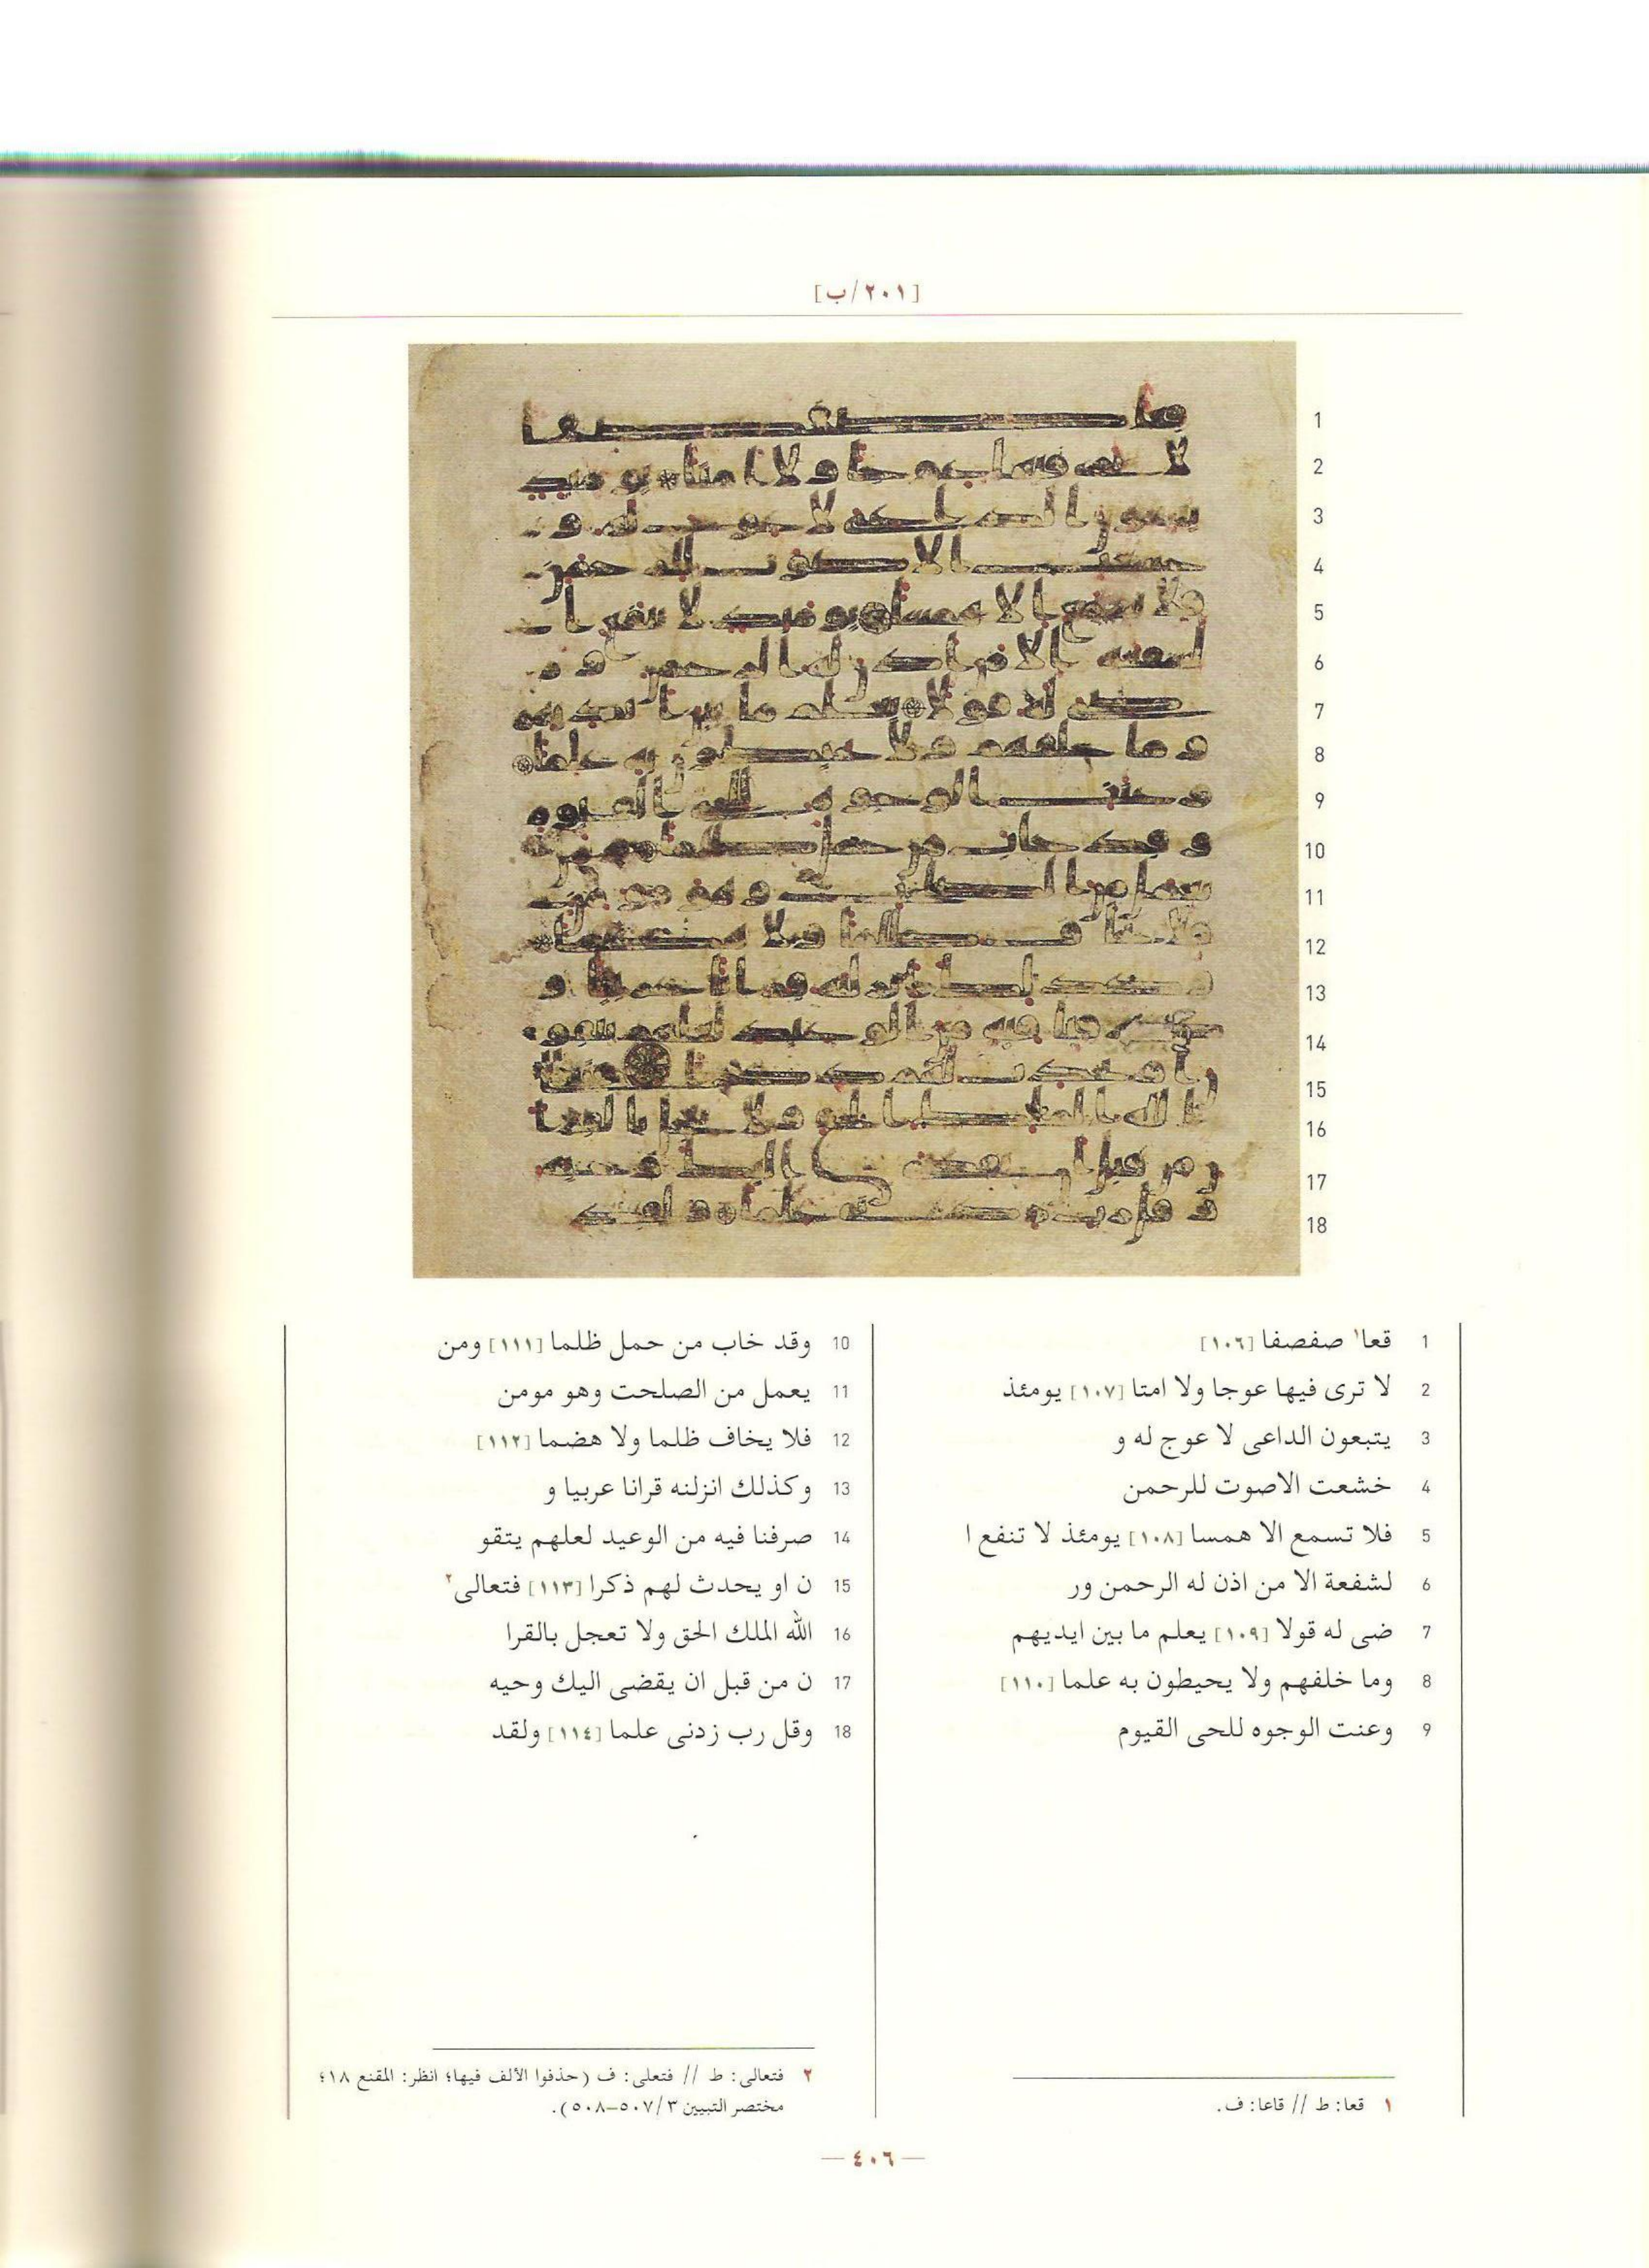 [٢٠١/ب]
1
2
3
4
5
6
7
8
9
10
11
12
13
14
15
16
17
18
1 قعا١ صفصفا [١٠٦]
2 لا ترى فيها عوجا ولا امتا [١٠٧] يومئذ
3 يتبعون الداعى لا عوج له و
4 خشعت الاصوت للرحمن
5 فلا تسمع الا همسا [١٠٨] يومئذ لا تنفع ا
6 لشفعة الا من اذن له الرحمن ور
7 ضى له قولا [١٠٩] يعلم ما بين ايديهم
8 وما خلفهم ولا يحيطون به علما [١١٠]
9 وعنت الوجوه للحى القيوم
10 وقد خاب من حمل ظلما [١١١] ومن
11 يعمل من الصلحت وهو مومن
12 فلا يخاف ظلما ولا هضما [١١٢]
13 وكذلك انزلنه قرانا عربيا و
14 صرفنا فيه من الوعيد لعلهم يتقو
15 ن او يحدث لهم ذكرا [١١٣] فتعالى٢
16 الله الملك الحق ولا تعجل بالقرا
17 ن من قبل ان يقضى اليك وحيه
18 وقل رب زدنى علما [١١٤] ولقد
١ قعا: ط // قاعا: ف.
٢ فتعالى: ط // فتعلى: ف (حذفوا الألف فيها؛ انظر: المقنع ١٨؛
مختصر التبيين ٣/ ٥٠٧–٥٠٨).
— ٤٠٦ —